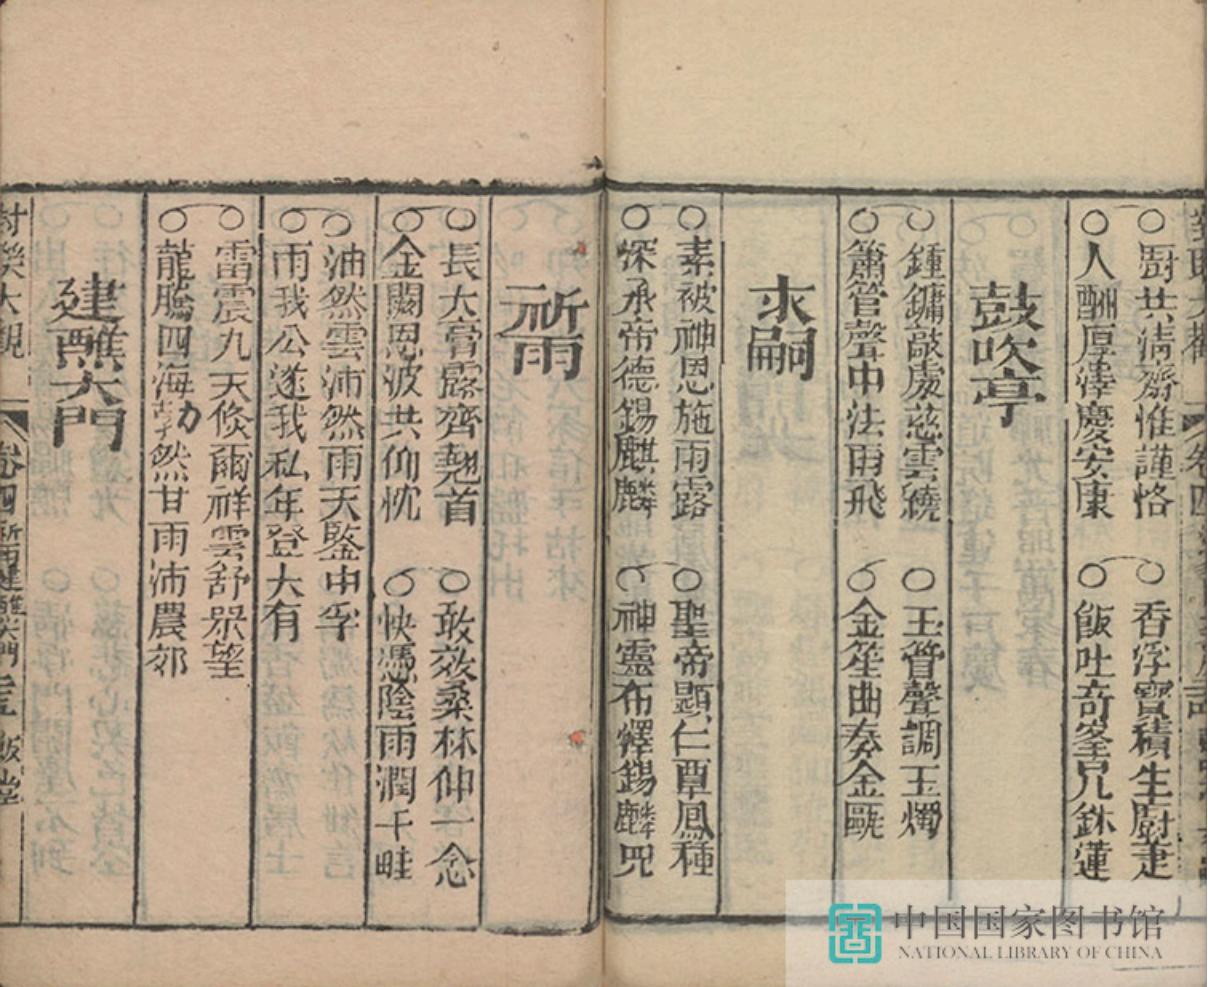 廚共清齋惟謹恪　香浮寶積生廚疌
人酬厚澤慶安康　飯吐奇峯見鉢蓮
鼓吹亭
鍾鏞敲處慈雲繞　玉管聲調玉燭
簫管聲中法雨飛　金笙曲奏金甌
求嗣
素被神恩施雨露　聖帝顯仁覃鳳種
深承帝德錫麒麟　神靈布懌錫麟兕
祈雨
長大膏露齊翹首　敢效桑林伸一念
金闕恩波共仰忱　快馮陰雨潤千畦
油然雲沛然雨天鑒中孚
雨我公遂我私年登大有
雷震九天倐爾祥雲舒眾望
龍騰四海勃然甘雨沛農郊
建醮大門
對聯大觀　卷四　祈雨建醮大門
中国国家图书馆
NATIONAL LIBRARY OF CHINA